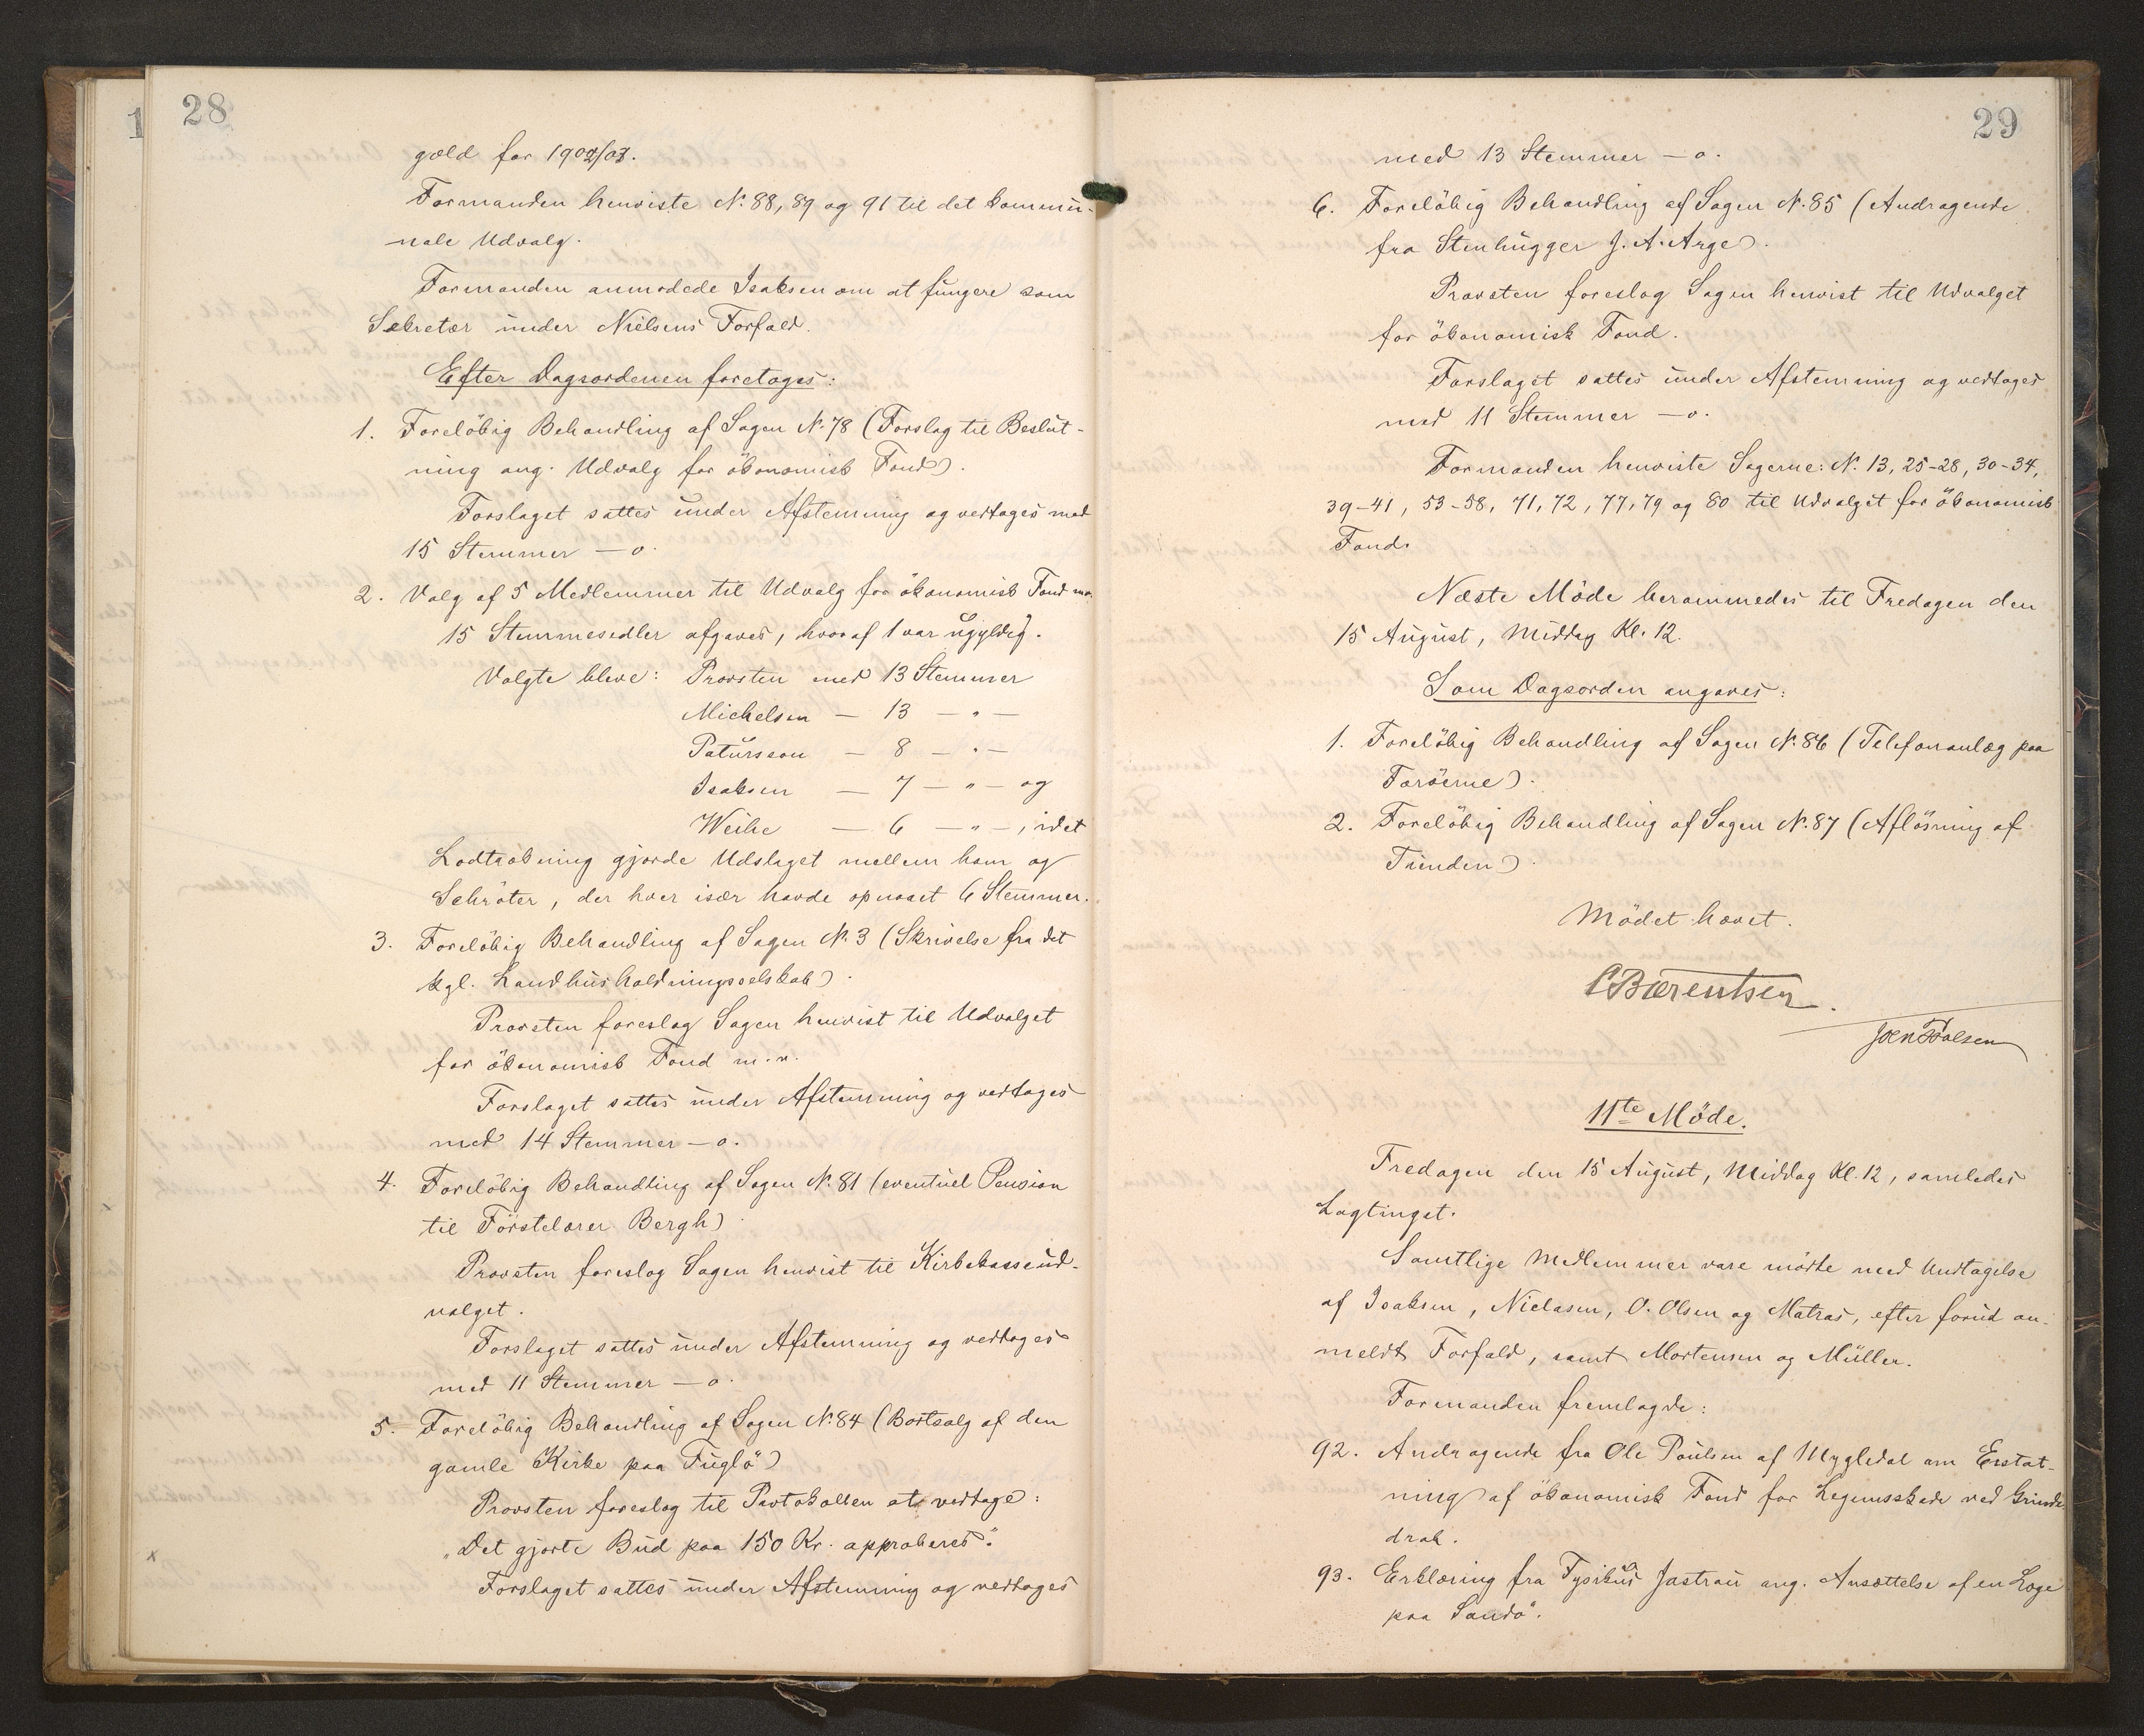 28
gæld for 1902/03.
Formanden henviste N. 88, 89 og 91 til det kommu-
nale Udvalg.
Formanden anmodede Isaksen om at fungere som
Sekretær under Nielsens Forfald.
Efter Dagsordenen foretoges:
1. Foreløbig Behandling af Sagen N. 78 (Forslag til Beslut-
ning ang. Udvalg for økonomisk Fond).
Forslaget sattes under Afstemning og vedtoges med
15 Stemmer — o.
2. Valg af 5 Medlemmer til Udvalg for økonomisk Fond m.v.
15 Stemmesedler afgaves, hvoraf 1 var ugyldig.
Valgte bleve: Provsten med 13 Stemmer
Michelsen — 13 — " —
Patursson — 8 — " —
Isaksen — 7 — " — og
Weihe — 6 — " —, idet
Lodtrækning gjorde Udslaget mellem ham og
Schrøter, der hver især havde opnaaet 6 Stemmer.
3. Foreløbig Behandling af Sagen N. 3 (Skrivelse fra det
kgl. Landhusholdningsselskab).
Provsten foreslog Sagen henvist til Udvalget
for økonomisk Fond m.v.
Forslaget sattes under Afstemning og vedtoges
med 14 Stemmer — o.
4. Foreløbig Behandling af Sagen N. 81 (eventuel Pension
til Førstelærer Bergh).
Provsten foreslog Sagen henvist til Kirkekasseud-
valget.
Forslaget sattes under Afstemning og vedtoges
med 11 Stemmer — o.
5. Foreløbig Behandling af Sagen N. 84 (Bortsalg af den
gamle Kirke paa Fuglø)
Provsten foreslog til Protokollen at vedtage:
"Det gjorte Bud paa 150 Kr. approberes".
Forslaget sattes under Afstemning og vedtoges
29
med 13 Stemmer — o.
6. Foreløbig Behandling af Sagen N. 85 (Andragende
fra Stenhugger J. A. Arge).
Provsten foreslog Sagen henvist til Udvalget
for økonomisk Fond.
Forslaget sattes under Afstemning og vedtoges
med 11 Stemmer — o.
Formanden henviste Sagerne: N. 13, 25-28, 30-34,
39-41, 53-58, 71, 72, 77, 79 og 80 til Udvalget for økonomisk
Fond.
Næste Møde berammedes til Fredagen den
15 August, Middag Kl. 12.
Som Dagsorden angaves:
1. Foreløbig Behandling af Sagen N. 86 (Telefonanlæg paa
Færøerne).
2. Foreløbig Behandling af Sagen N. 87 (Afløsning af
Tienden).
Mødet hævet.
C Bærentsen.
Joen Poulsen
11te Møde.
Fredagen den 15 August, Middag Kl. 12, samledes
Lagtinget.
Samtlige Medlemmer vare mødte med Undtagelse
af Isaksen, Niclasen, O. Olsen og Matras, efter forud an-
meldt Forfald, samt Mortensen og Müller.
Formanden fremlagde:
92. Andragende fra Ole Poulsen af Mygledal om Erstat-
ning af økonomisk Fond for Legemsskade ved Grinde
drab.
93. Erklæring fra Fysikus Jastrau ang. Ansættelse af en Læge
paa Sandø.